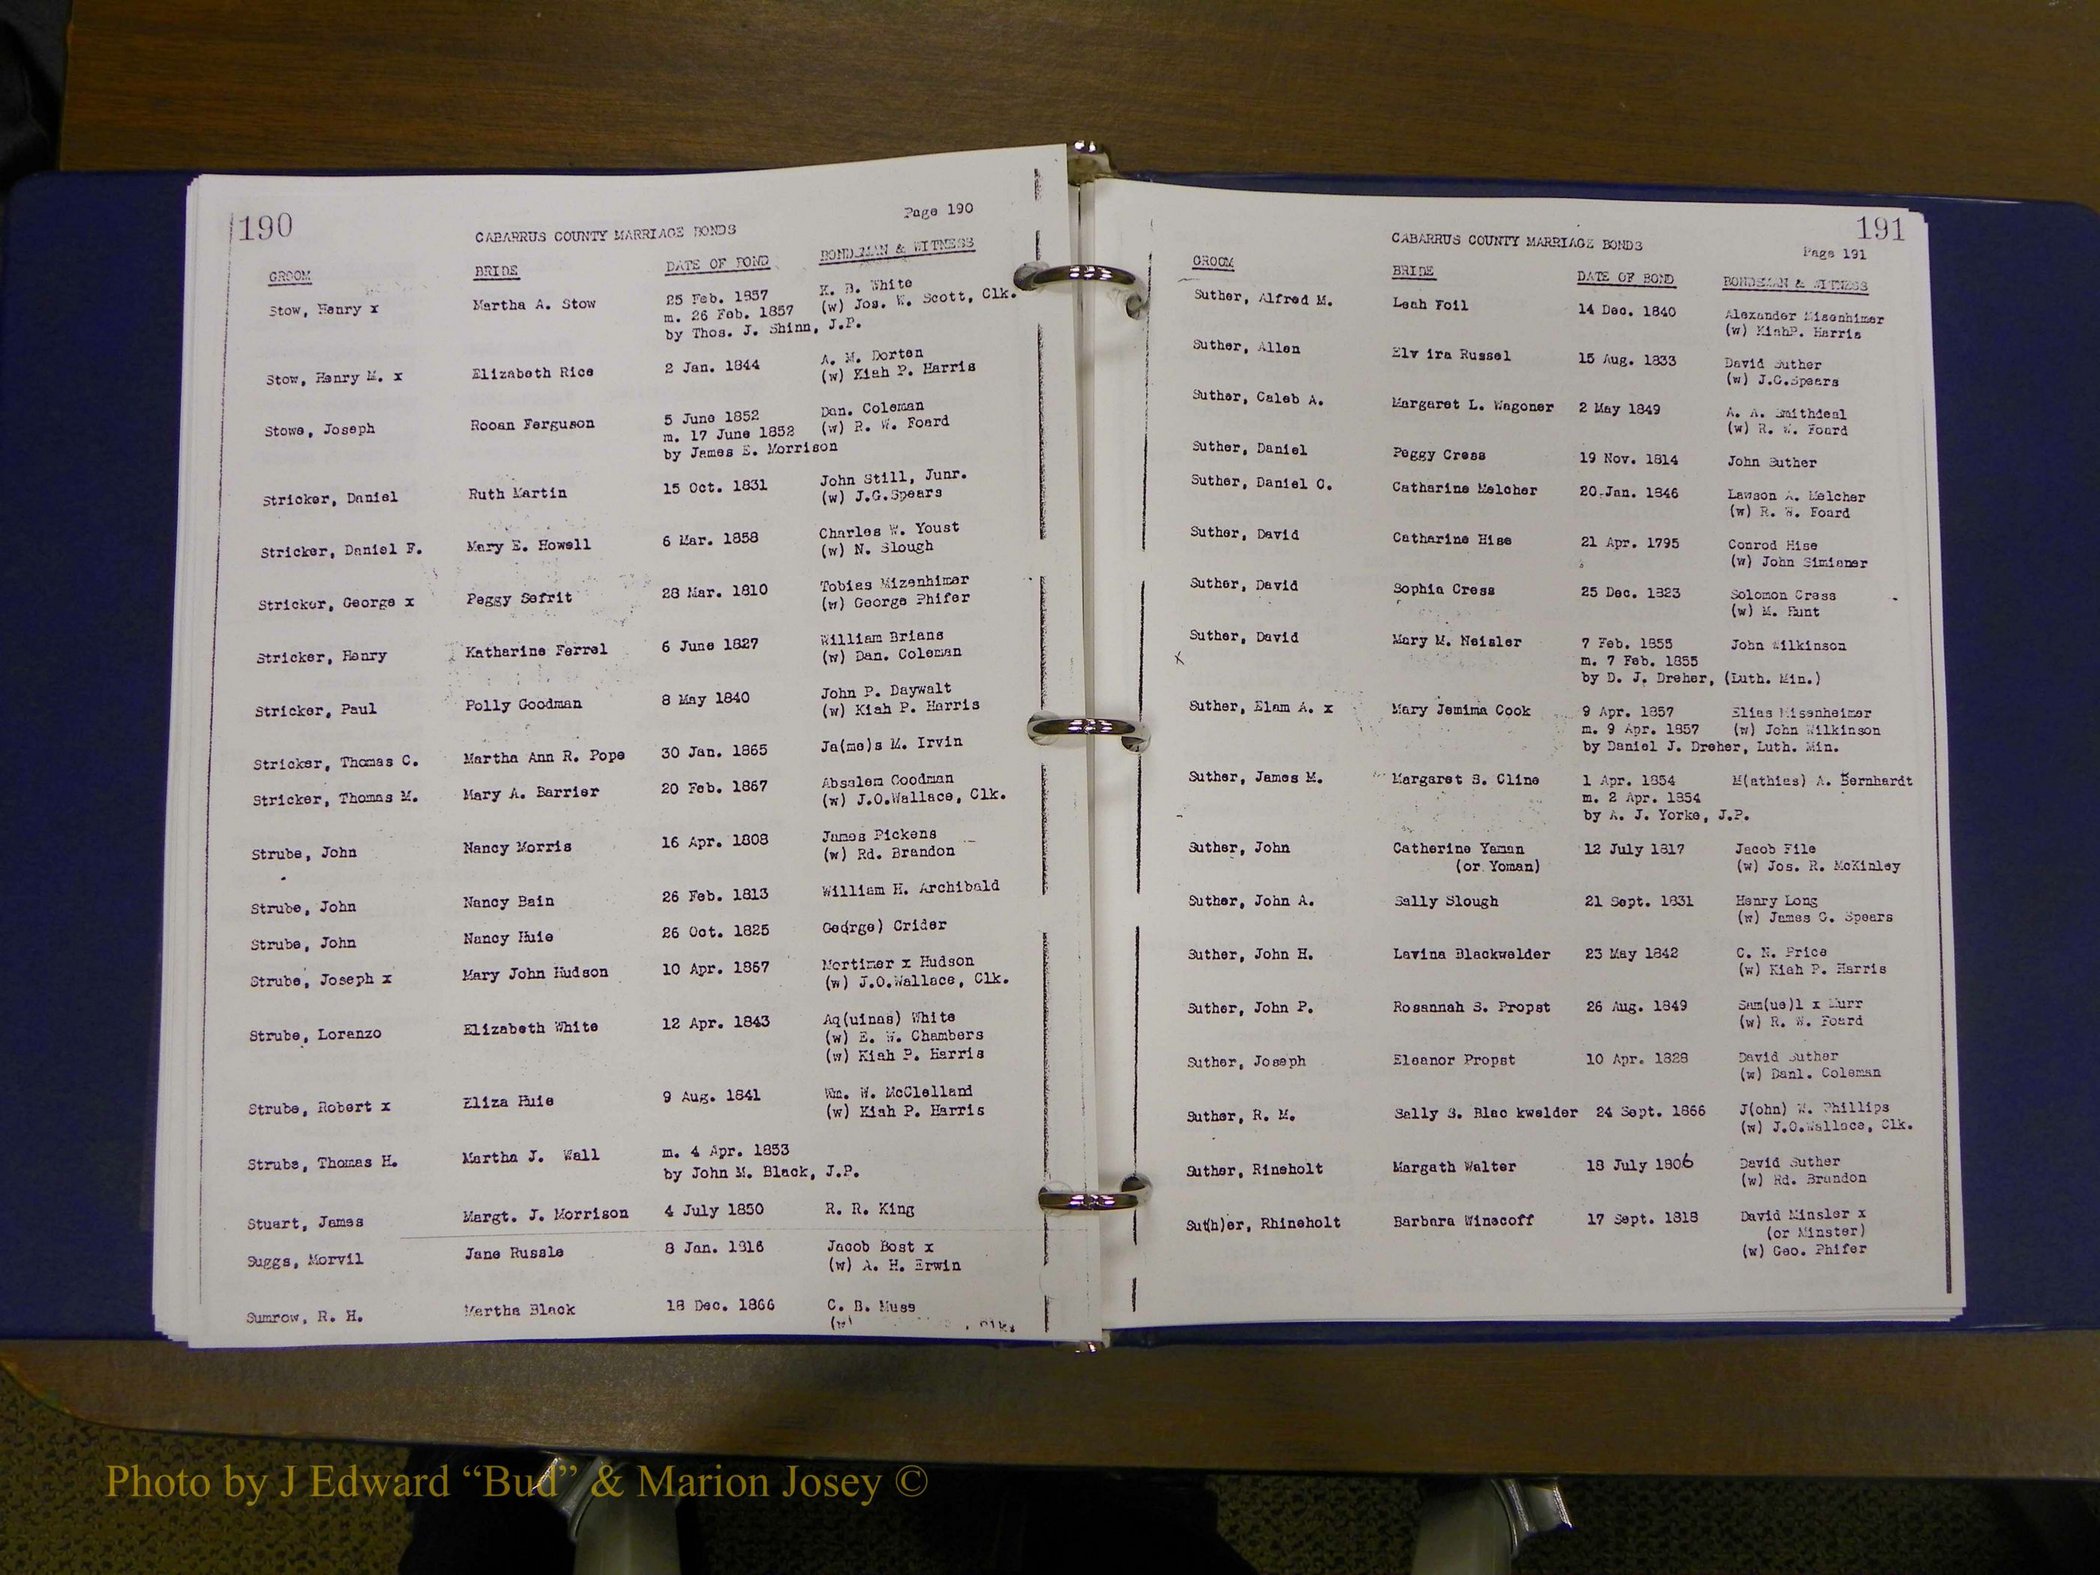 190
Page 190
CABARRUS COUNTY MARRIAGE BONDS
GROOM BRIDE DATE OF BOND BONDSMAN & WITNESS
Stow, Henry x Martha A. Stow 25 Feb. 1857 K. B. White
m. 26 Feb. 1857 (w) Jos. W. Scott, Clk.
by Thos. J. Shinn, J.P.
Stow, Henry M. x Elizabeth Rice 2 Jan. 1844 A. M. Dorten
(w) Kiah P. Harris
Stowe, Joseph Rooan Ferguson 5 June 1852 Dan. Coleman
m. 17 June 1852 (w) R. W. Foard
by James E. Morrison
Stricker, Daniel Ruth Martin 15 Oct. 1831 John Still, Junr.
(w) J.G.Spears
Stricker, Daniel F. Mary E. Howell 6 Mar. 1858 Charles W. Youst
(w) N. Slough
Stricker, George x Peggy Sefrit 28 Mar. 1810 Tobias Mizenhimer
(w) George Phifer
Stricker, Henry Katharine Ferrel 6 June 1827 William Brians
(w) Dan. Coleman
Stricker, Paul Polly Goodman 8 May 1840 John P. Daywalt
(w) Kiah P. Harris
Stricker, Thomas C. Martha Ann R. Pope 30 Jan. 1865 Ja(me)s M. Irvin
Stricker, Thomas M. Mary A. Barrier 20 Feb. 1867 Absalem Goodman
(w) J.O.Wallace, Clk.
Strube, John Nancy Morris 16 Apr. 1808 James Pickens
(w) Rd. Brandon
Strube, John Nancy Bain 26 Feb. 1813 William H. Archibald
Strube, John Nancy Huie 26 Oct. 1825 Geo(rge) Crider
Strube, Joseph x Mary John Hudson 10 Apr. 1867 Mortimer x Hudson
(w) J.O.Wallace, Clk.
Strube, Loranzo Elizabeth White 12 Apr. 1843 Aq(uinas) White
(w) E. W. Chambers
(w) Kiah P. Harris
Strube, Robert x Eliza Huie 9 Aug. 1841 Wm. W. McClelland
(w) Kiah P. Harris
Strube, Thomas H. Martha J. Wall m. 4 Apr. 1853
by John M. Black, J.P.
Stuart, James Margt. J. Morrison 4 July 1850 R. R. King
Suggs, Morvil Jane Russle 8 Jan. 1816 Jacob Bost x
(w) A. H. Erwin
Sumrow, R. H. Martha Black 18 Dec. 1866 C. B. Muss
(w) , Clk.
191
Page 191
CABARRUS COUNTY MARRIAGE BONDS
GROOM BRIDE DATE OF BOND BONDSMAN & WITNESS
Suther, Alfred M. Leah Foil 14 Dec. 1840 Alexander Misenhimer
(w) KiahP. Harris
Suther, Allen Elv ira Russel 15 Aug. 1833 David Suther
(w) J.G.Spears
Suther, Caleb A. Margaret L. Wagoner 2 May 1849 A. A. Smithdeal
(w) R. W. Foard
Suther, Daniel Peggy Cress 19 Nov. 1814 John Suther
Suther, Daniel C. Catharine Melcher 20 Jan. 1846 Lawson A. Melcher
(w) R. W. Foard
Suther, David Catharine Hise 21 Apr. 1795 Conrod Hise
(w) John Simianer
Suther, David Sophia Cress 25 Dec. 1823 Solomon Cress
(w) M. Hunt
Suther, David Mary M. Neisler 7 Feb. 1855 John Wilkinson
x m. 7 Feb. 1855
by D. J. Dreher, (Luth. Min.)
Suther, Elam A. x Mary Jemima Cook 9 Apr. 1857 Elias Misenheimer
m. 9 Apr. 1857 (w) John Wilkinson
by Daniel J. Dreher, Luth. Min.
Suther, James M. Margaret S. Cline 1 Apr. 1854 M(athias) A. Bernhardt
m. 2 Apr. 1854
by A. J. Yorke, J.P.
Suther, John Catherine Yaman 12 July 1817 Jacob File
(or Yoman) (w) Jos. R. McKinley
Suther, John A. Sally Slough 21 Sept. 1831 Henry Long
(w) James G. Spears
Suther, John H. Lavina Blackwelder 23 May 1842 C. N. Price
(w) Kiah P. Harris
Suther, John P. Rosannah S. Propst 26 Aug. 1849 Sam(ue)l x Murr
(w) R. W. Foard
Suther, Joseph Eleanor Propst 10 Apr. 1828 David Suther
(w) Danl. Coleman
Suther, R. M. Sally S. Blac kwelder 24 Sept. 1866 J(ohn) W. Phillips
(w) J.O.Wallace, Clk.
Suther, Rineholt Margath Walter 18 July 1806 David Suther
(w) Rd. Brandon
Sut(h)er, Rhineholt Barbara Winecoff 17 Sept. 1818 David Minsler x
(or Minster)
(w) Geo. Phifer
Photo by J Edward “Bud” & Marion Josey ©